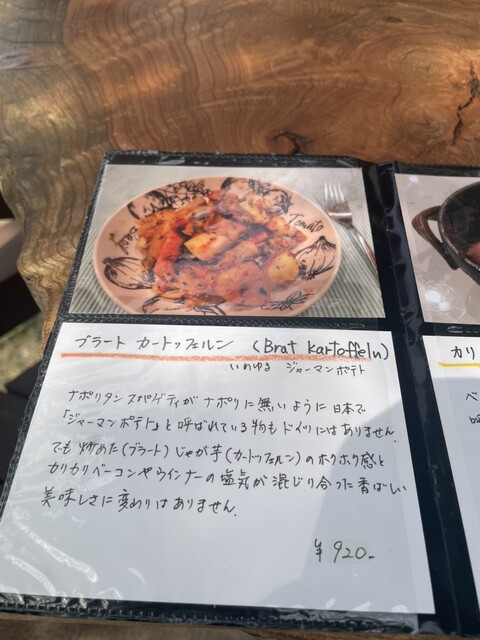 Tomato
ブラート カートッフェルン (Brat Kartoffeln)
いわゆる ジャーマンポテト
ナポリタン スパゲティが ナポリに無いように 日本で
「ジャーマンポテト」と呼ばれている物もドイツにはありません.
でも 炒めた(ブラート)じゃが芋(カートッフェルン)のホクホク感と
カリカリベーコンやウインナーの塩気が混じり合った香ばしい
美味しさに変わりはありません.
¥ 920-
カリ